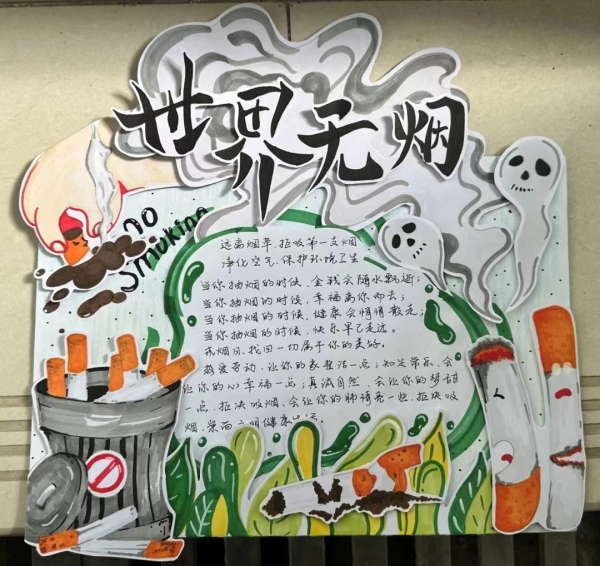 世界无烟
NO
Smoking
远离烟草,拒吸第一支烟
净化空气,保护环境卫生
当你抽烟的时候,金钱会随水飘逝;
当你抽烟的时候,幸福离你而去;
当你抽烟的时候,健康会悄悄散走;
当你抽烟的时候,快乐早已走远。
戒烟日,找回一切属于你的美好。
热爱劳动,让你的家整洁一点;知足常乐,会
让你的心幸福一点;真诚自然,会让你的梦甜
一点,拒决吸烟,会让你的肺清亮一些,拒决吸
烟,崇尚文明健康生活。